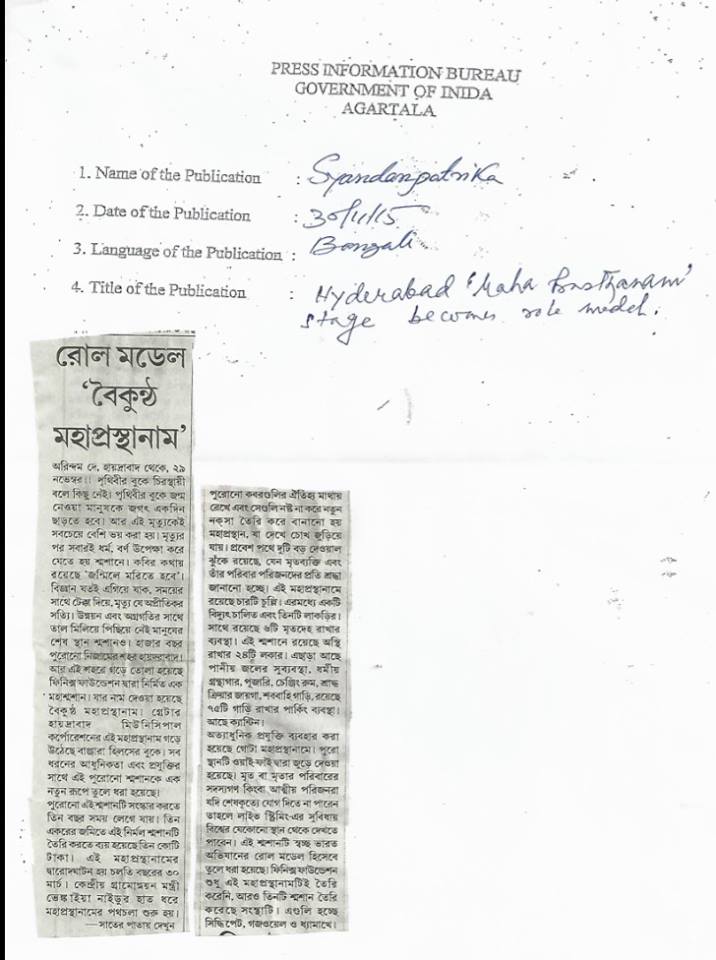 PRESS INFORMATION BUREAU
GOVERNMENT OF INIDA
AGARTALA
1. Name of the Publication : Syandanpatrika
2. Date of the Publication : 30/11/15
3. Language of the Publication : Bengali
4. Title of the Publication : Hyderabad 'Maha Prasthanam'
stage becomes role model.
রোল মডেল
‘বৈকুন্ঠ
মহাপ্রস্থানাম’
অরিন্দম দে, হায়দ্রাবাদ থেকে, ২৯
নভেম্বর।। পৃথিবীর বুকে চিরস্থায়ী
বলে কিছু নেই। পৃথিবীর বুকে জন্ম
নেওয়া মানুষকে জগৎ একদিন
ছাড়তে হবে। আর এই মৃত্যুকেই
সবচেয়ে বেশি ভয় করা হয়। মৃত্যুর
পর সবারই ধর্ম, বর্ণ উপেক্ষা করে
যেতে হয় শ্মশানে। কবির কথায়
রয়েছে ‘জন্মিলে মরিতে হবে’।
বিজ্ঞান যতই এগিয়ে যাক, সময়ের
সাথে টেক্কা দিয়ে, মৃত্যু যে অপ্রীতিকর
সত্যি। উন্নয়ন এবং অগ্রগতির সাথে
তাল মিলিয়ে পিছিয়ে নেই মানুষের
শেষ স্থান শ্মশানও। হাজার বছর
পুরোনো নিজামের শহর হায়দ্রাবাদ।
আর এই শহরে গড়ে তোলা হয়েছে
ফিনিক্স ফাউন্ডেশন দ্বারা নির্মিত এক
মহাশ্মশান। যার নাম দেওয়া হয়েছে
বৈকুন্ঠ মহাপ্রস্থানাম। গ্রেটার
হায়দ্রাবাদ মিউনিসিপাল
কর্পোরেশনের এই মহাপ্রস্থানাম গড়ে
উঠেছে বাঞ্জারা হিলসের বুকে। সব
ধরনের আধুনিকতা এবং প্রযুক্তির
সাথে এই পুরোনো শ্মশানকে এক
নতুন রূপে তুলে ধরা হয়েছে।
পুরোনো এই শ্মশানটি সংস্কার করতে
তিন বছর সময় লেগে যায়। তিন
একরের জমিতে এই নির্মল শ্মশানটি
তৈরি করতে ব্যয় হয়েছে তিন কোটি
টাকা। এই মহাপ্রস্থানামের
দ্বারোদঘাটন হয় চলতি বছরের ৩০
মার্চ। কেন্দ্রীয় গ্রামোন্নয়ন মন্ত্রী
ভেঙ্কাইয়া নাইডুর হাত ধরে
মহাপ্রস্থানামের পথচলা শুরু হয়।
—সাতের পাতায় দেখুন
পুরোনো কবরগুলির ঐতিহ্য মাথায়
রেখে এবং সেগুলি নষ্ট না করে নতুন
নক্সা তৈরি করে বানানো হয়
মহাপ্রস্থান, যা দেখে চোখ জুড়িয়ে
যায়। প্রবেশ পথে দুটি বড় দেওয়াল
ঝুঁকে রয়েছে, যেন মৃতব্যক্তি এবং
তাঁর পরিবার পরিজনদের প্রতি শ্রদ্ধা
জানানো হচ্ছে। এই মহাপ্রস্থানামে
রয়েছে চারটি চুল্লি। এরমধ্যে একটি
বিদ্যুৎ চালিত এবং তিনটি লাকড়ির।
সাথে রয়েছে ৬টি মৃতদেহ রাখার
ব্যবস্থা। এই শ্মশানে রয়েছে অস্থি
রাখার ২৪টি লকার। এছাড়া আছে
পানীয় জলের সুব্যবস্থা, ধর্মীয়
গ্রন্থাগার, পূজারি, চেঞ্জিং রুম, শ্রাদ্ধ
ক্রিয়ার জায়গা, শববাহি গাড়ি, রয়েছে
৭৫টি গাড়ি রাখার পার্কিং ব্যবস্থা।
আছে ক্যান্টিন।
অত্যাধুনিক প্রযুক্তি ব্যবহার করা
হয়েছে গোটা মহাপ্রস্থানামে। পুরো
স্থানটি ওয়াই-ফাই দ্বারা জুড়ে দেওয়া
হয়েছে। মৃত বা মৃতার পরিবারের
সদস্যগণ কিংবা আত্মীয় পরিজনরা
যদি শেষকৃত্যে যোগ দিতে না পারেন
তাহলে লাইভ স্ট্রিমিং-এর সুবিধায়
বিশ্বের যেকোনো স্থান থেকে দেখতে
পারেন। এই শ্মশানটি স্বচ্ছ ভারত
অভিযানের রোল মডেল হিসেবে
তুলে ধরা হয়েছে। ফিনিক্স ফাউন্ডেশন
শুধু এই মহাপ্রস্থানামটিই তৈরি
করেনি, আরও তিনটি শ্মশান তৈরি
করেছে সংস্থাটি। এগুলি হচ্ছে
সিদ্ধিপেট, গজওয়েল ও ধ্যামাখে।